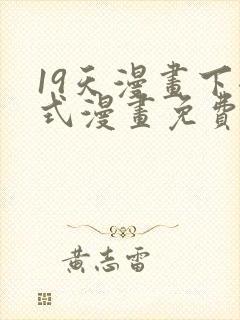 19天漫畫下
式漫畫免費
黃志雷